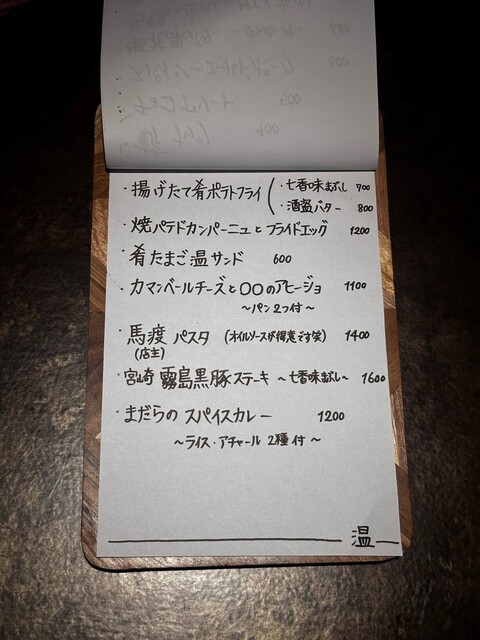 ・揚げたて肴ポテトフライ
・七香味まぶし 700
・酒盗バター 800
・焼パテドカンパーニュとフライドエッグ 1200
・肴たまご温サンド 600
・カマンベールチーズと〇〇のアヒージョ 1100
〜パン2つ付〜
・馬渡パスタ (オイルソースが得意です笑) 1400
(店主)
・宮崎 霧島黒豚ステーキ 〜七香味まぶし〜 1600
・まだらの スパイスカレー 1200
〜ライス・アチャール 2種付〜
温